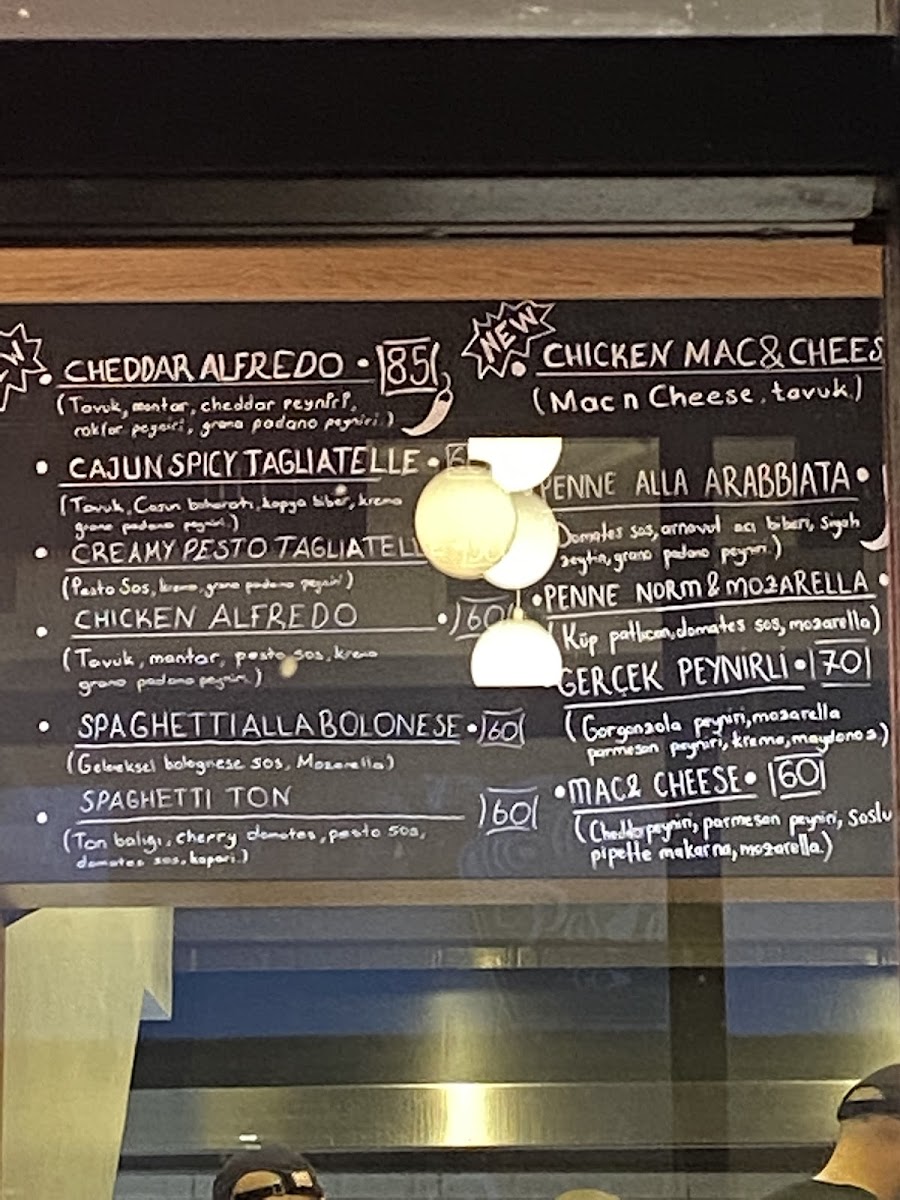 CHEDDAR ALFREDO • 85
(Tavuk, mantar, cheddar peyniri,
rokfor peyniri, grana padano peyniri.)
• CAJUN SPICY TAGLIATELLE •
(Tavuk, Cajun baharatı, kapya biber, krema
grano padano peyniri.)
• CREAMY PESTO TAGLIATELL
(Pesto Sos, krema, grano padano peyniri)
• CHICKEN ALFREDO • 60
(Tavuk, mantar, pesto sos, krema
grano padano peyniri.)
• SPAGHETTI ALLA BOLONESE • 60
(Geleeksel bolognese sos, Mozarella)
• SPAGHETTI TON 60
(Ton balığı, cherry domates, pesto sos,
domates sos, kapari.)
NEW
• CHICKEN MAC&CHEES
(Mac n Cheese, tavuk)
PENNE ALLA ARABBIATA •
Domates sos, arnavut acı biberi, Siyah
zeytin, grano padano peyniri.)
• PENNE NORM & MOZARELLA •
(Küp patlıcan, domates sos, mozarella)
GERÇEK PEYNİRLİ • 70
(Gorgonzola peyniri, mozarella
parmesan peyniri, krema, maydonoz)
• MAC& CHEESE • 60
(Cheddar peyniri, parmesan peyniri, soslu
pipette makarna, mozarella.)